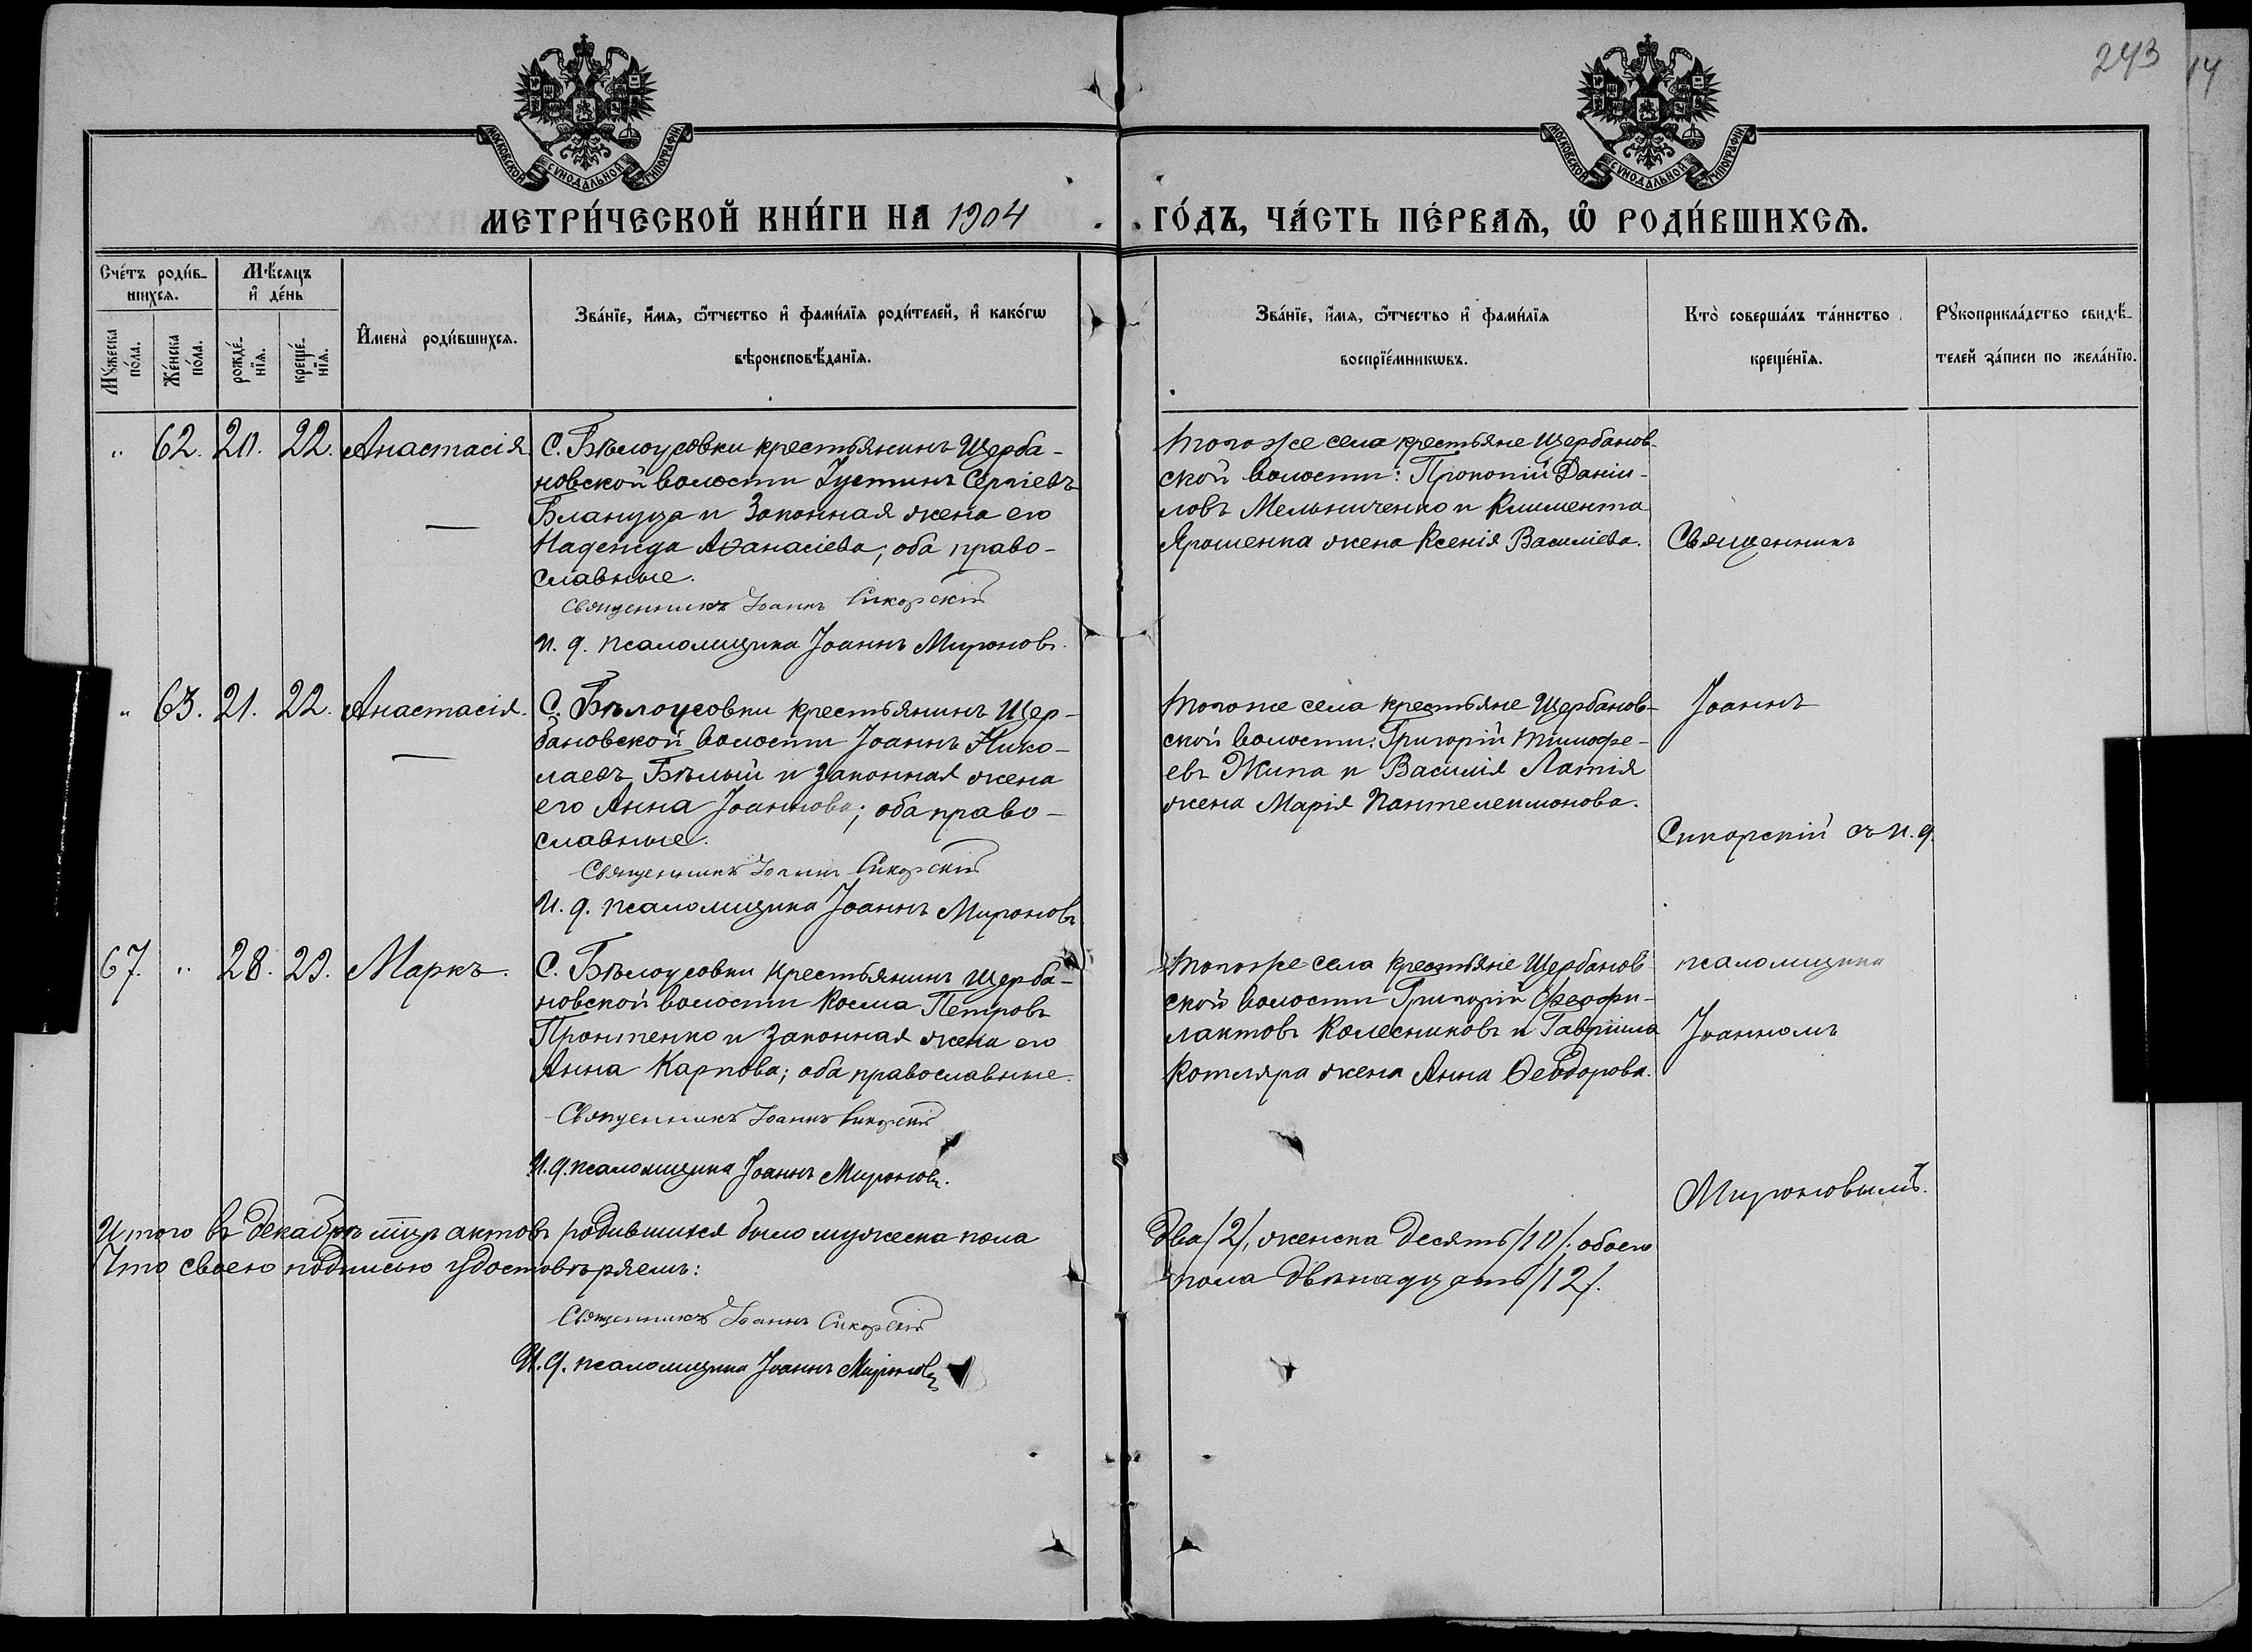 243
14
МОСКОВСКОЙ СѴНОДАЛЬНОЙ ТѴПОГРАФІИ
МОСКОВСКОЙ СѴНОДАЛЬНОЙ ТѴПОГРАФІИ
МЕТРИ́ЧЕСКОЙ КНИ́ГИ НА 1904 ГО́ДЪ, ЧА́СТЬ ПЕ́РВАѦ, Ѡ҆ РОДИ́ВШИХСѦ.
Сче́тъ роди́в-
шихсѧ.
Мꙋ́жеска по́ла.
Же́нска по́ла.
Мѣ́сѧцъ
и҆ де́нь
рожде́-
нїѧ.
креще́-
нїѧ.
И҆мена̀ роди́вшихсѧ.
Зва́нїе, и҆́мѧ, ѻ҆́тчество и҆ фами́лїѧ роди́телей, и҆ како́гѡ
вѣроисповѣ́данїѧ.
Зва́нїе, и҆́мѧ, ѻ҆́тчество и҆ фами́лїѧ
воспрїе́мникѡвъ.
Кто̀ соверша́лъ та́инство
креще́нїѧ.
Рꙋкоприкла́дство свидѣ́-
телей за́писи по жела́нїю.
" 62. 20. 22. Анастасія
С. Бѣлоусовки крестьянинъ Щерба-
новской волости Іустинъ Сергіевъ
Блануца и законная жена его
Надежда Аѳанасіева; оба право-
славные.
Священникъ Іоаннъ Сикорскій
И. д. псаломщика Іоаннъ Мироновъ.
Того же села крестьяне Щербанов-
ской волости: Прокопій Даніи-
ловъ Мельниченко и Климента
Ярошенка жена Ксенія Василіева.
Священникъ
" 63. 21. 22. Анастасія.
С. Бѣлоусовки крестьянинъ Щер-
бановской волости Іоаннъ Нико-
лаевъ Бѣлый и законная жена
его Анна Іоаннова; оба право-
славные.
Священникъ Іоаннъ Сикорскій
И. д. псаломщика Іоаннъ Мироновъ
Того же села крестьяне Щербанов-
ской волости: Григорій Тимофе-
евъ Жила и Василія Латія
жена Марія Пантелеимонова.
Іоаннъ
Сикорскій съ и. д.
67. " 28. 29. Маркъ.
С. Бѣлоусовки крестьянинъ Щерба-
новской волости Косма Петровъ
Пронтенко и законная жена его
Анна Карпова; оба православные.
Священникъ Іоаннъ Сикорскій
И. д. псаломщика Іоаннъ Мироновъ.
Того же села крестьяне Щербанов-
ской волости Григорій Феофи-
лактовъ Колесниковъ и Гавріила
Котляра жена Анна Ѳеодорова.
псаломщика
Іоанномъ
Мироновымъ.
Итого въ декабрѣ м-цѣ актовъ родившихся было мужеска пола
два /2/, женска десять /10/; обоего
пола двѣнадцать /12/.
Что своею подписью удостовѣряемъ:
Священникъ Іоаннъ Сикорскій
И. д. псаломщика Іоаннъ Мироновъ